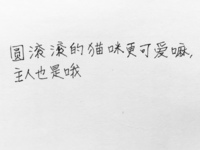 圆滚滚的猫咪更可爱嘛,
主人也是哦